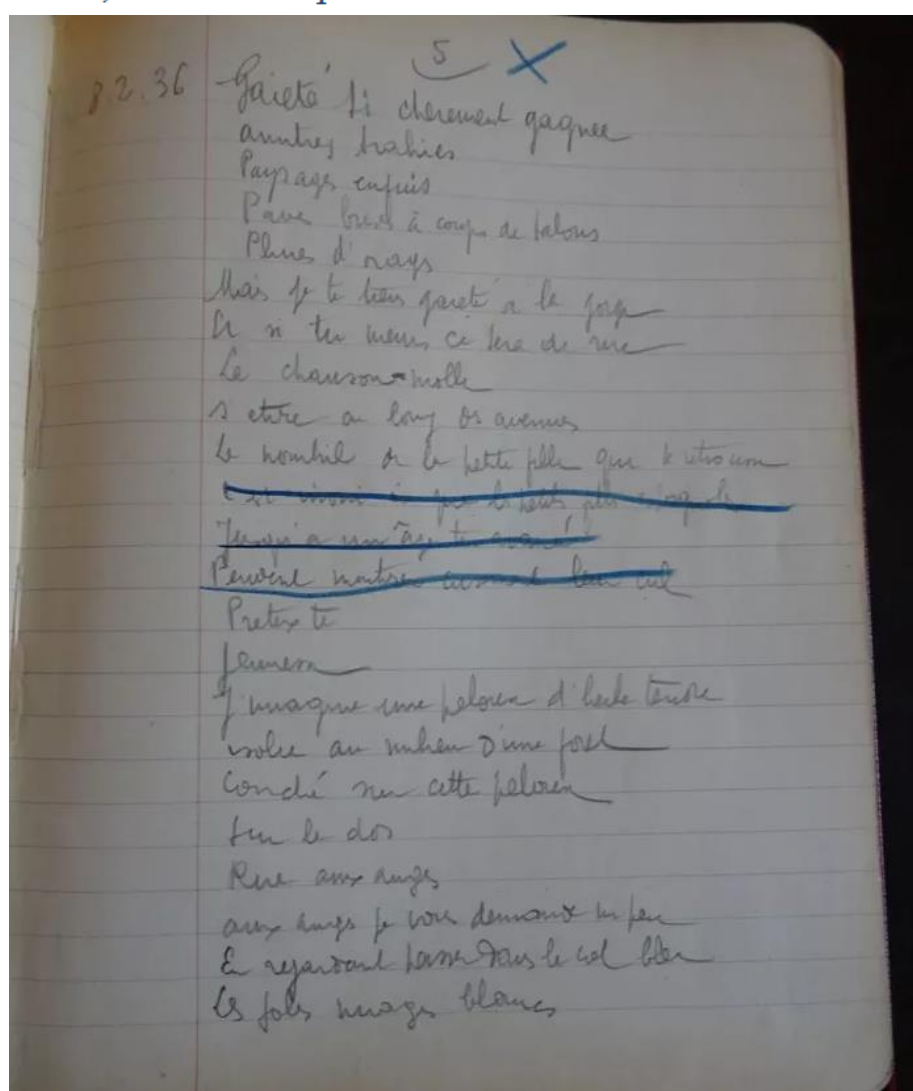 5 X
8.2.36 Gaieté si cherement gagnee
amities trahies
Paysages enfuis
Paves brisés à coups de talons
Pluies d'orages
Mais je te tiens gaieté à la gorge
Et si tu meurs ce sera de rire
La chanson molle
s'etire au long des avenues
Le nombril de la petite fille que
C'est inoui ce que les petites filles
Jusqu'à un âge tres avancé
Peuvent montrer aisement leur cul
Pretexte
Jeunesse
J'imagine une pelouse d'herbe tendre
isolee au milieu d'une foret
Couché sur cette pelouse
sur le dos
Rire aux anges
aux anges je vous demande un peu
En regardant passer dans le ciel bleu
Les jolis nuages blancs